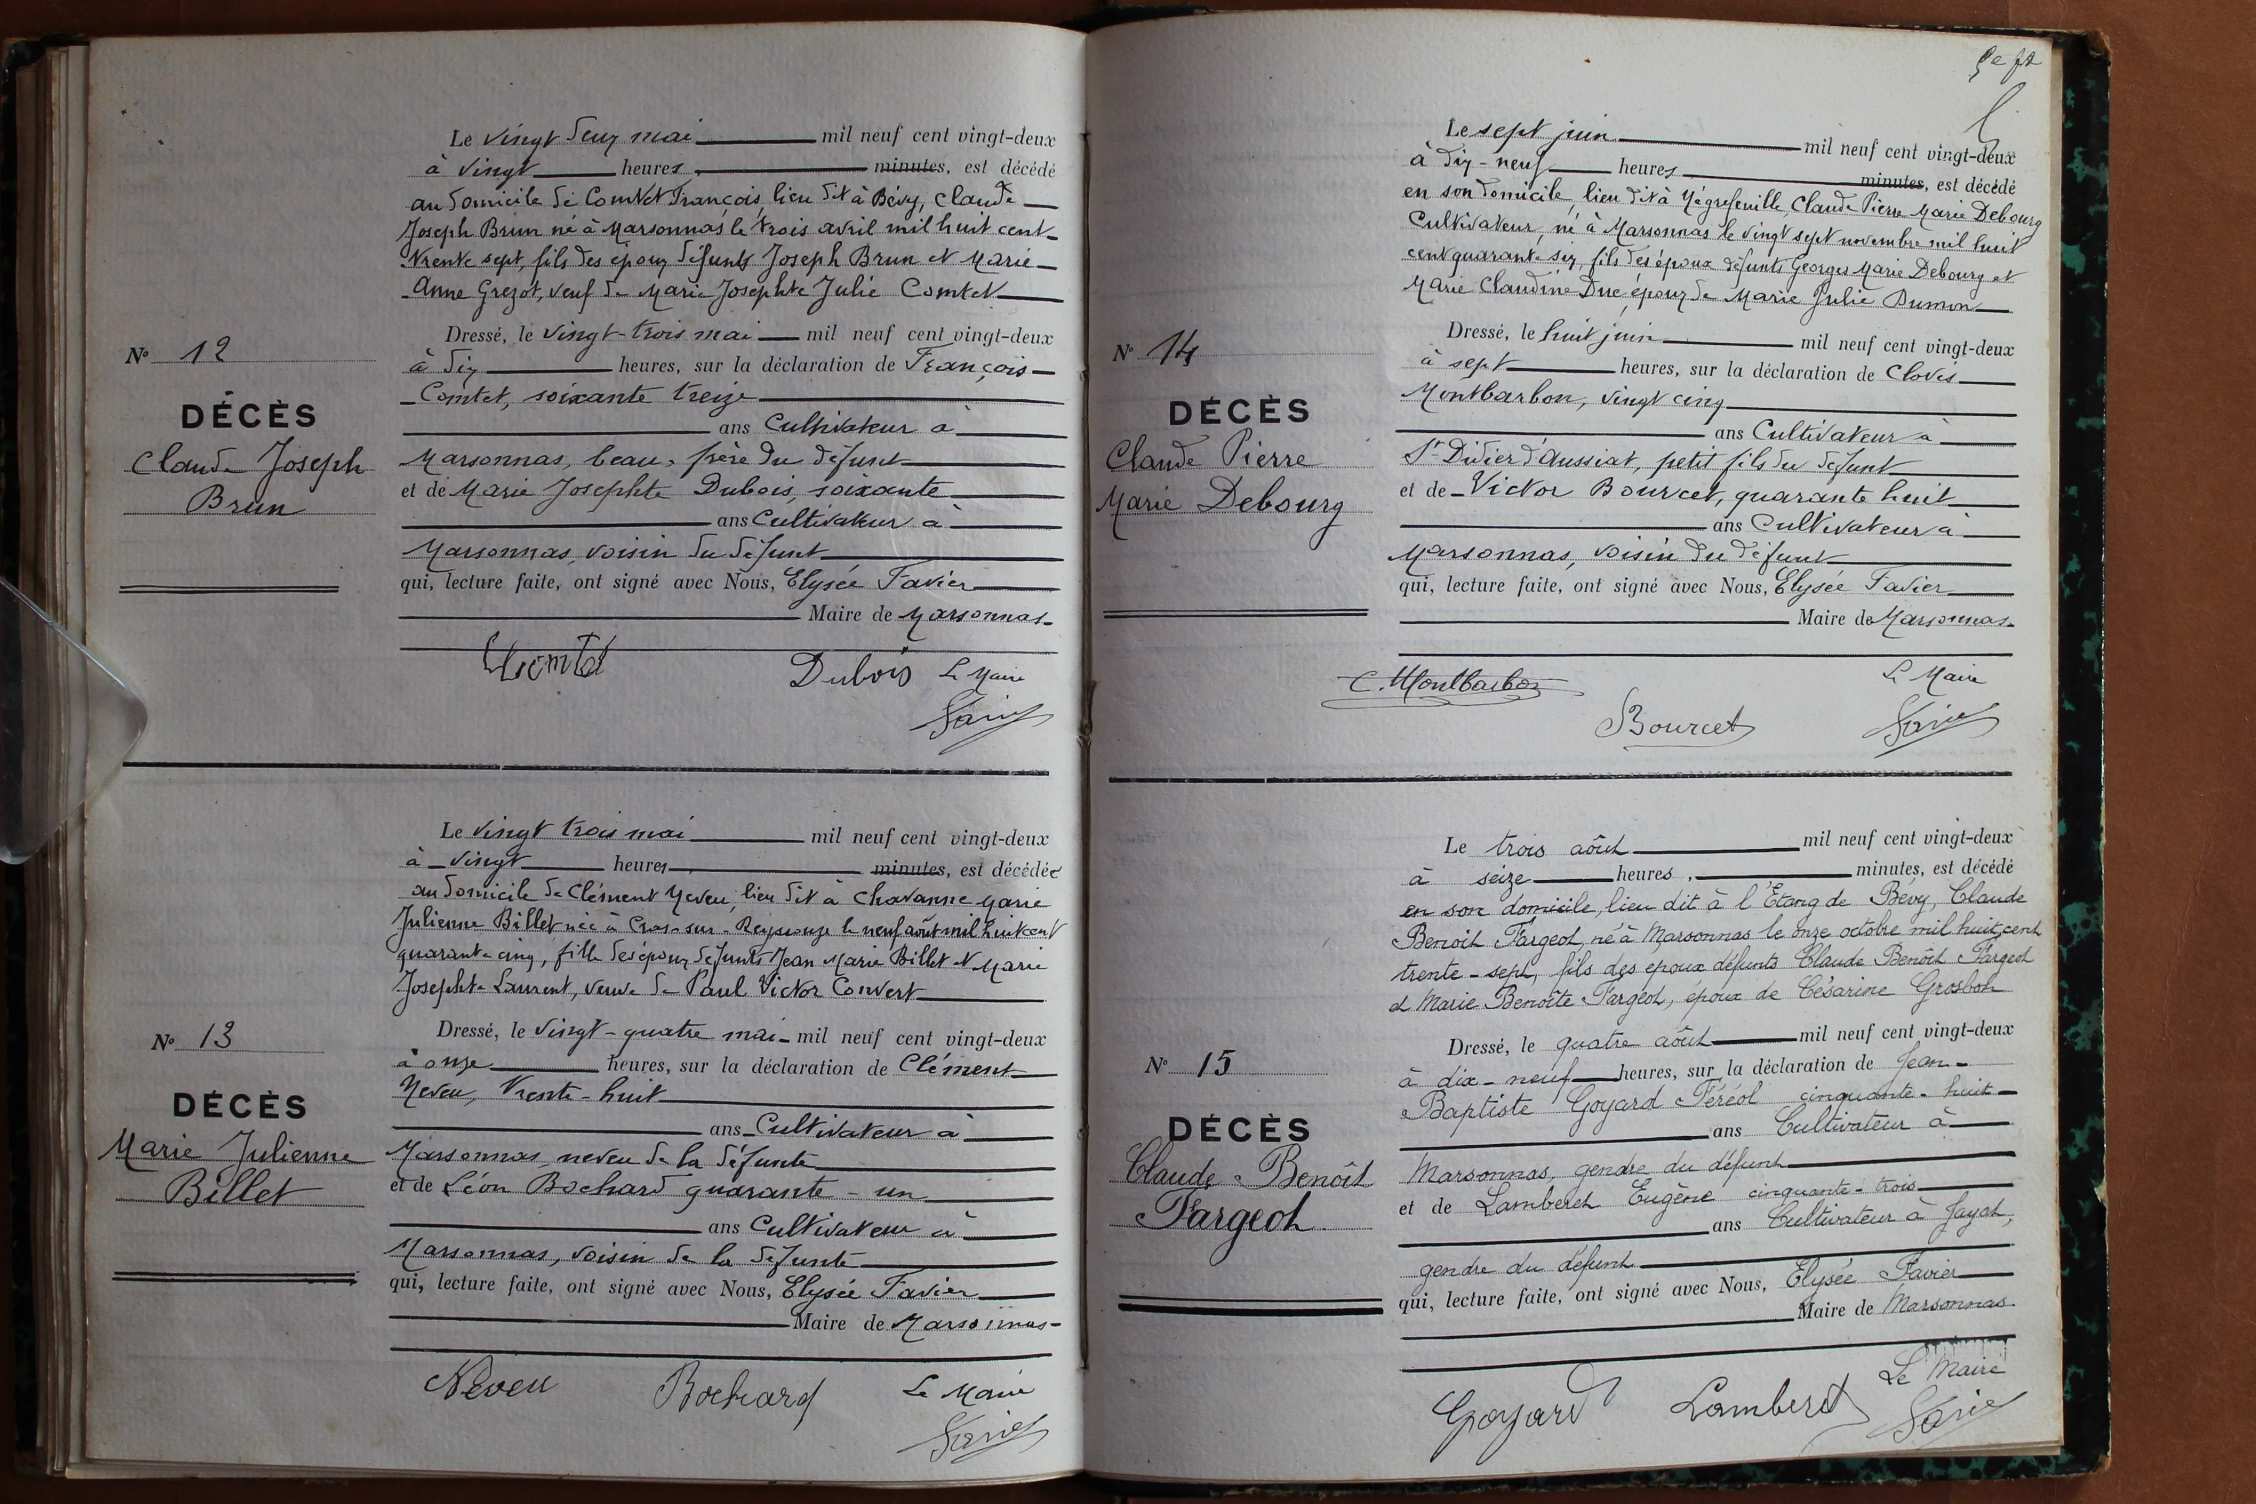 Le vingt deux mai mil neuf cent vingt-deux
à vingt heures, minutes, est décédé
au domicile de Comtet François, lieu dit à Bévy, Claude
Joseph Brun né à Marsonnas le trois avril mil huit cent
trente sept, fils des époux défunts Joseph Brun et Marie
Anne Grezot, veuf de Marie Josephte Julie Comtet
Dressé, le vingt-trois mai mil neuf cent vingt-deux
à dix heures, sur la déclaration de François
Comtet, soixante treize
ans Cultivateur à
Marsonnas, beau-frère du défunt
et de Marie Josephte Dubois, soixante
ans Cultivateur à
Marsonnas, voisin du défunt
qui, lecture faite, ont signé avec Nous, Elysée Favier
Maire de Marsonnas
N° 12
DÉCÈS
Claude Joseph
Brun
Comtet Dubois Le Maire
Favier
Le vingt trois mai mil neuf cent vingt-deux
à vingt heures, minutes, est décédée
au domicile de Clément Neveu, lieu dit à Chavanne Marie
Julienne Billet née à Cras-sur-Reyssouze le neuf août mil huit cent
quarante cinq, fille des époux défunts Jean Marie Billet et Marie
Josephte Laurent, veuve de Paul Victor Convert
Dressé, le vingt-quatre mai mil neuf cent vingt-deux
à onze heures, sur la déclaration de Clément
Neveu, trente-huit
ans Cultivateur à
Marsonnas, neveu de la défunte
et de Léon Bochard quarante-un
ans Cultivateur à
Marsonnas, voisin de la défunte
qui, lecture faite, ont signé avec Nous, Elysée Favier
Maire de Marsonnas
N° 13
DÉCÈS
Marie Julienne
Billet
Neveu Bochard Le Maire
Favier
Le sept juin mil neuf cent vingt-deux
à dix-neuf heures minutes, est décédé
en son domicile, lieu dit à Négrefeuille, Claude Pierre Marie Debourg
Cultivateur, né à Marsonnas le vingt sept novembre mil huit
cent quarante six, fils des époux défunts Georges Marie Debourg et
Marie Claudine Duc, époux de Marie Julie Dumon
Dressé, le huit juin mil neuf cent vingt-deux
à sept heures, sur la déclaration de Clovis
Montbarbon, vingt cinq
ans Cultivateur à
St Didier d'Aussiat, petit fils du défunt
et de Victor Bourcet, quarante huit
ans Cultivateur à
Marsonnas, voisin du défunt
qui, lecture faite, ont signé avec Nous, Elysée Favier
Maire de Marsonnas
N° 14
DÉCÈS
Claude Pierre
Marie Debourg
C. Montbarbon Le Maire
Bourcet Favier
Le trois août mil neuf cent vingt-deux
à seize heures, minutes, est décédé
en son domicile, lieu dit à l'Étang de Bévy, Claude
Benoit Fargeot, né à Marsonnas le onze octobre mil huit cent
trente-sept, fils des époux défunts Claude Benoît Fargeot
et Marie Benoîte Fargeot, époux de Césarine Grosbon
Dressé, le quatre août mil neuf cent vingt-deux
à dix-neuf heures, sur la déclaration de Jean-
Baptiste Goyard Féréol cinquante-huit
ans Cultivateur à
Marsonnas, gendre du défunt
et de Lamberet Eugène cinquante-trois
ans Cultivateur à Jayat,
gendre du défunt
qui, lecture faite, ont signé avec Nous, Elysée Favier
Maire de Marsonnas
N° 15
DÉCÈS
Claude Benoît
Fargeot
Goyard Lamberet Le Maire
Favier